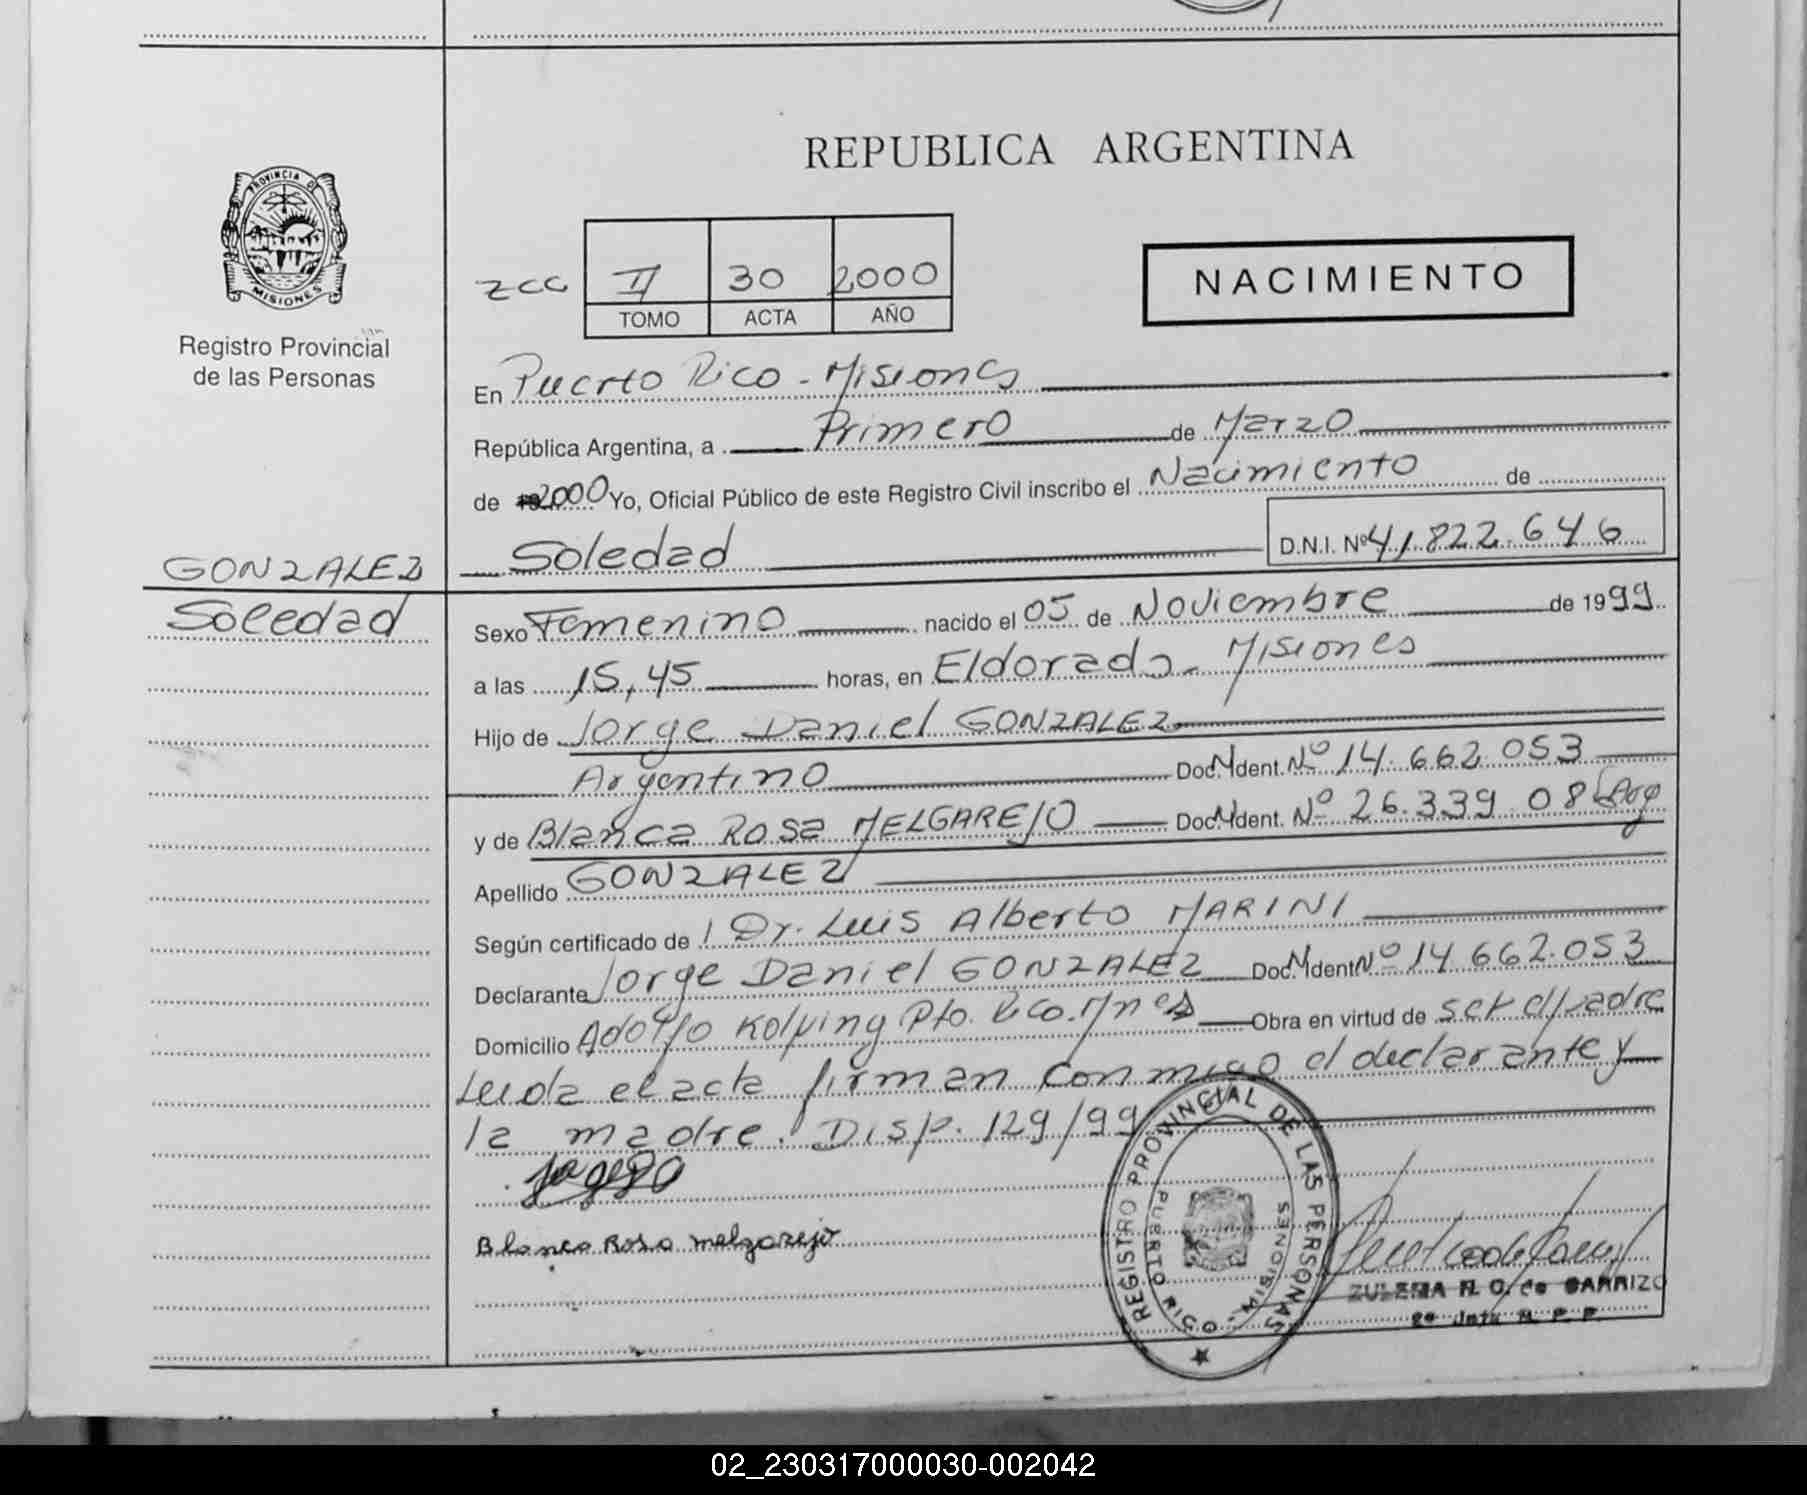 REPUBLICA ARGENTINA
PROVINCIA DE
MISIONES
Registro Provincial
de las Personas
zcc II 30 2000
TOMO ACTA AÑO
NACIMIENTO
En Puerto Rico - Misiones
República Argentina, a Primero de Marzo
de 2000 Yo, Oficial Público de este Registro Civil inscribo el Nacimiento de
Soledad D.N.I. Nº 41.822.646
GONZALEZ
Soledad
Sexo Femenino nacido el 05 de Noviembre de 1999
a las 15,45 horas, en Eldorado - Misiones
Hijo de Jorge Daniel GONZALEZ
Argentino Doc. Ident. Nº 14.662.053
y de Blanca Rosa MELGAREJO Doc. Ident. Nº 26.339.08 Arg
Apellido GONZALEZ
Según certificado de Dr. Luis Alberto MARINI
Declarante Jorge Daniel GONZALEZ Doc. Ident Nº 14.662.053
Domicilio Adolfo Kolping Pto. Rico. Mnes Obra en virtud de ser el padre
Leida el acta firman conmigo el declarante y
la madre. Disp. 129/99
Blanca Rosa melgarejo
REGISTRO PROVINCIAL DE LAS PERSONAS
PUERTO RICO - MISIONES
ZULEMA R. O. de CARRIZO
02_230317000030-002042